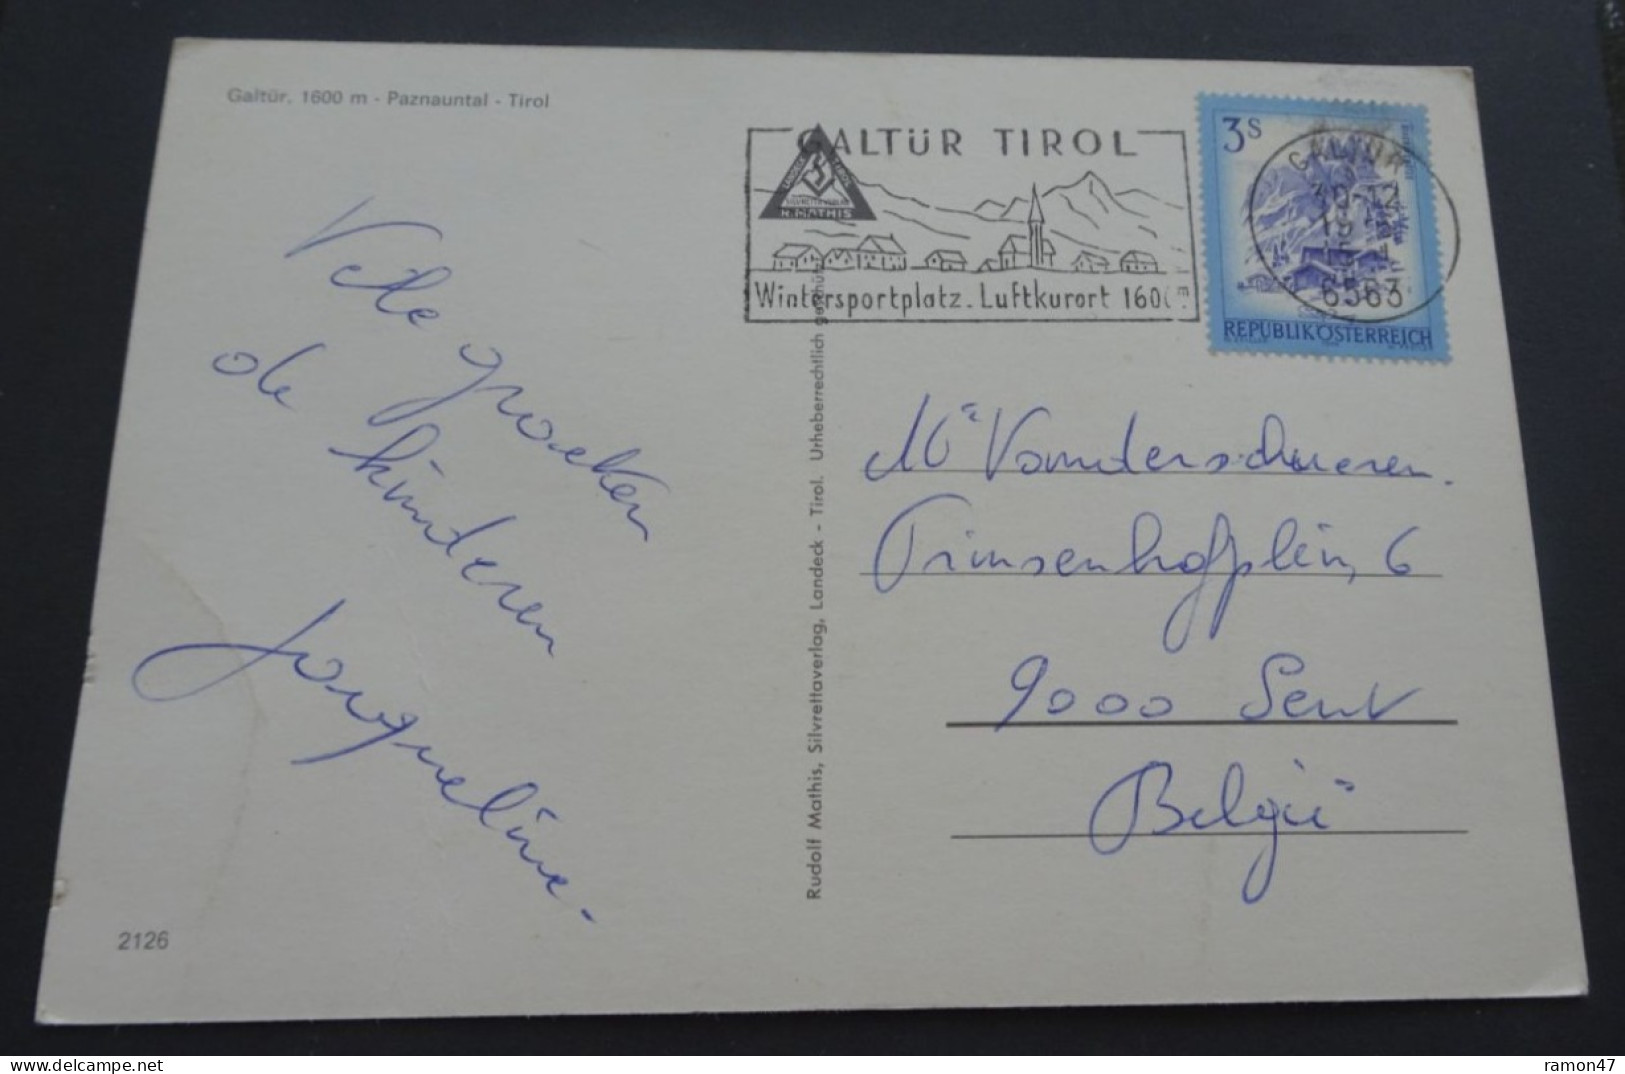 Galtür, 1600 m - Paznauntal - Tirol
GALTÜR TIROL
SILVRETTAVERLAG
R. MATHIS
Wintersportplatz - Luftkurort 1600 m
3 S
REPUBLIK ÖSTERREICH
GALTÜR
30-12
6563
Vele groeten
de kinderen
Jacqueline.
Rudolf Mathis, Silvrettaverlag, Landeck - Tirol. Urheberrechtlich geschützt
Vanderschueren.
Prinsenhofplein, 6
9000 Gent
België
2126
ramon47